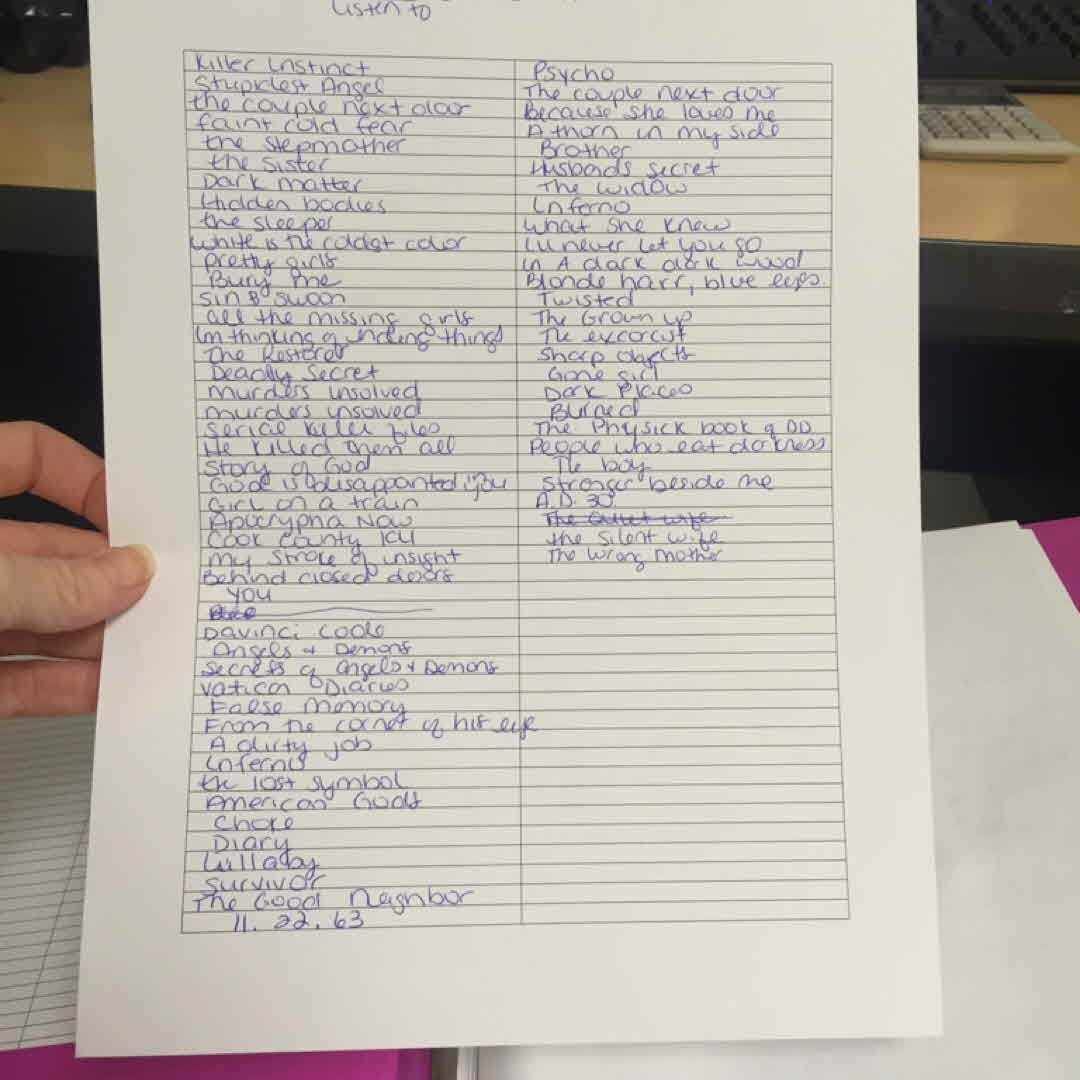 Listen to
Killer Instinct
Stupidest Angel
the couple next door
faint cold fear
the stepmother
the Sister
Dark matter
Hidden bodies
the sleeper
White is the coldest color
Pretty girls
Bury me
Sin & Swoon
all the missing girls
Im thinking of ending things
The Restorer
Deadly Secret
Murders unsolved
murders unsolved
Serial Killer files
He Killed them all
Story of God
God is disappointed in you
Girl on a train
Apocrypha Now
Cook County ICU
My Stroke of insight
Behind closed doors
You
Davinci code
Angels & Demons
Secrets of Angels & Demons
Vatican Diaries
False Memory
From the corner of his eye
A dirty job
Inferno
the lost symbol
American Gods
Choke
Diary
Lullaby
Survivor
The Good Neighbor
11. 22. 63
Psycho
The couple next door
Because she loves me
A thorn in my side
Brother
Husbands secret
The widow
Inferno
What She Knew
I'll never let you go
In A dark dark wood
Blonde hair, blue eyes.
Twisted
The Grown up
The excorcist
Sharp objects
Gone girl
Dark Places
Burned
The Physick book of DD.
People who eat darkness
The boy
Stranger beside me
A.D. 30
The Quiet wife
the silent wife
The wrong mother